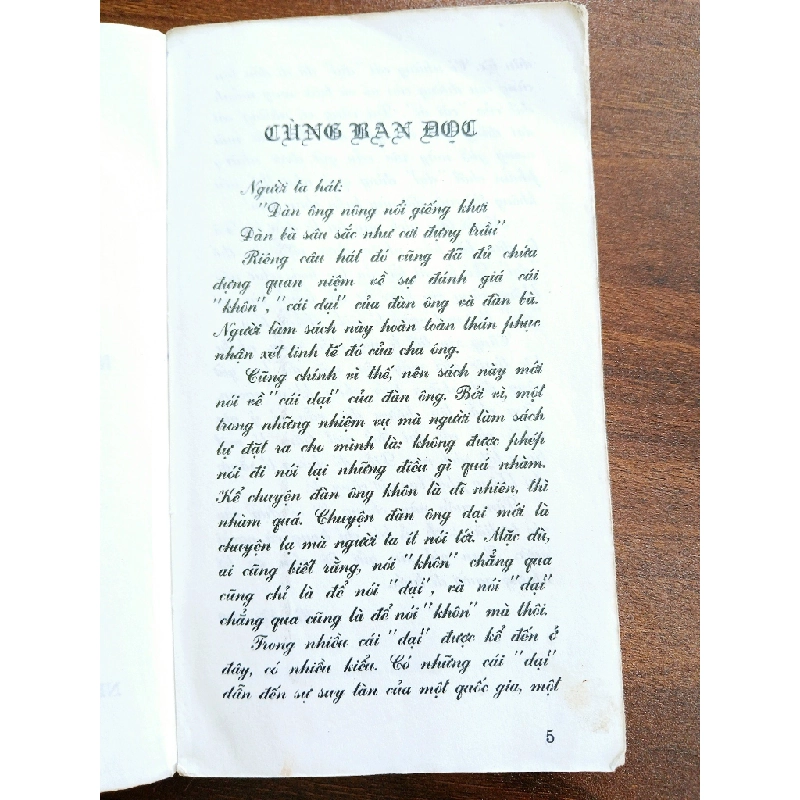 CÙNG BẠN ĐỌC
Người ta hát:
"Đàn ông nông nổi giếng khơi
Đàn bà sâu sắc như cơi đựng trầu"
Riêng câu hát đó cũng đã đủ chứa
đựng quan niệm về sự đánh giá cái
"khôn", "cái dại" của đàn ông và đàn bà.
Người làm sách này hoàn toàn thán phục
nhận xét tinh tế đó của cha ông.
Cũng chính vì thế, nên sách này mới
nói về "cái dại" của đàn ông. Bởi vì, một
trong những nhiệm vụ mà người làm sách
tự đặt ra cho mình là: không được phép
nói đi nói lại những điều gì quá nhàm.
Kể chuyện đàn ông khôn là dĩ nhiên, thì
nhàm quá. Chuyện đàn ông dại mới là
chuyện lạ mà người ta ít nói tới. Mặc dù,
ai cũng biết rằng, nói "khôn" chẳng qua
cũng chỉ là để nói "dại", và nói "dại"
chẳng qua cũng là để nói "khôn" mà thôi.
Trong nhiều cái "dại" được kể đến ở
đây, có nhiều kiểu. Có những cái "dại"
dẫn đến sự suy tàn của một quốc gia, một
5